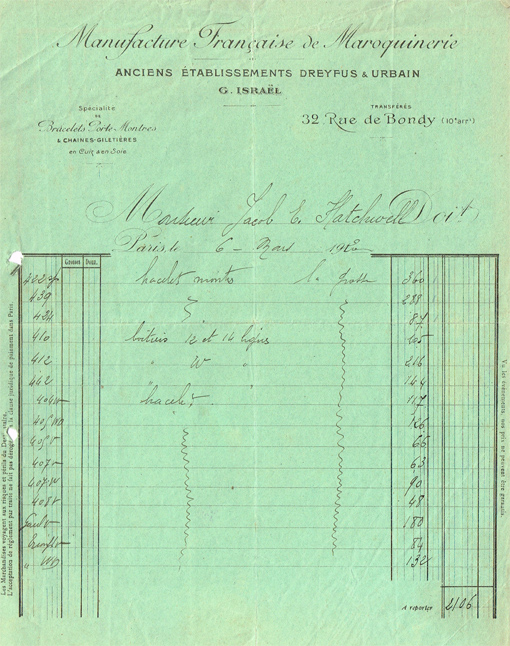 Manufacture Française de Maroquinerie
ANCIENS ÉTABLISSEMENTS DREYFUS & URBAIN
G. ISRAËL
Spécialité
DE
Bracelets Porte-Montres
& CHAINES-GILETIÈRES
en Cuir & en Soie
TRANSFÉRÉS
32 Rue de Bondy (10e arrt)
Monsieur Jacob E. Hatchwell Doit
Paris, le 6 Mars 192
Grosses Douz.
bracelet montre la grosse 360
439 288
434 87
410 boitiers 12 et 14 lignes
412 " W " 216
442 144
bracelet 117
126
66
407 63
90
408 48
180
84
" 132
A reporter 2106
Les Marchandises voyagent aux risques et périls du Destinataire.
L'acceptation de règlement par traite ne fait pas dérogation à la clause juridique de paiement dans Paris.
Vu les événements, nos prix ne peuvent être garantis.